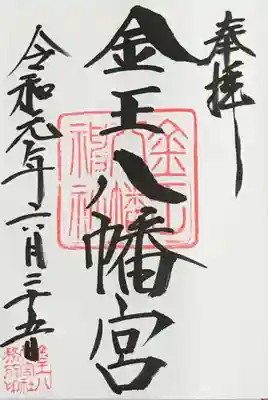 奉拝
金王八幡宮
金王
八幡
神社
令和元年六月二十五日
金王八
幡宮社
務所印